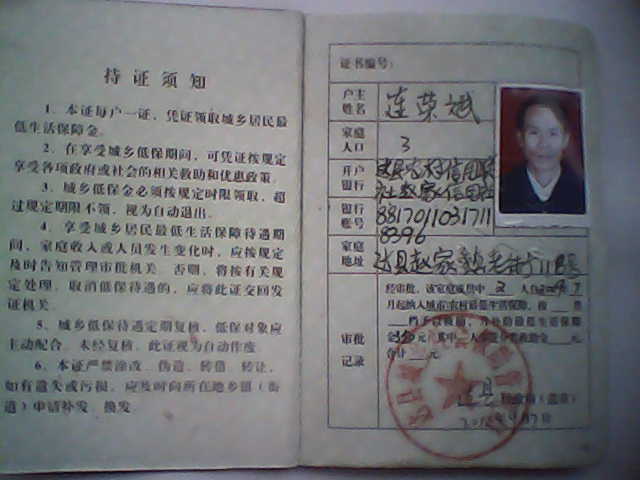 持证须知
1、本证每户一证，凭证领取城乡居民最
低生活保障金。
2、在享受城乡低保期间，可凭证按规定
享受各项政府或社会的相关救助和优惠政策。
3、城乡低保金必须按规定时限领取，超
过规定期限不领，视为自动退出。
4、享受城乡居民最低生活保障待遇期
间，家庭收入或人员发生变化时，应按规定
及时告知管理审批机关，否则，将按有关规
定处理。取消低保待遇的，应将此证交回发
证机关。
5、城乡低保待遇定期复核，低保对象应
主动配合。未经复核，此证视为自动作废。
6、本证严禁涂改、伪造、转借、转让，
如有遗失或污损，应及时向所在地乡镇（街
道）申请补发、换发。
证书编号：
户主
姓名
连荣斌
家庭
人口
3
开户
银行
达县农村信用联
社赵家信用社
银行
账号
8817011031711
8396
家庭
地址
达县赵家镇老街
审批
记录
经审批，该家庭成员中 人自 年 月
月起纳入城市/农村最低生活保障，按 类
档予以救助，月补助最低生活保障
金 元，其中 人享受分类救助金 元，
合计 元。
达县 民政局（盖章）